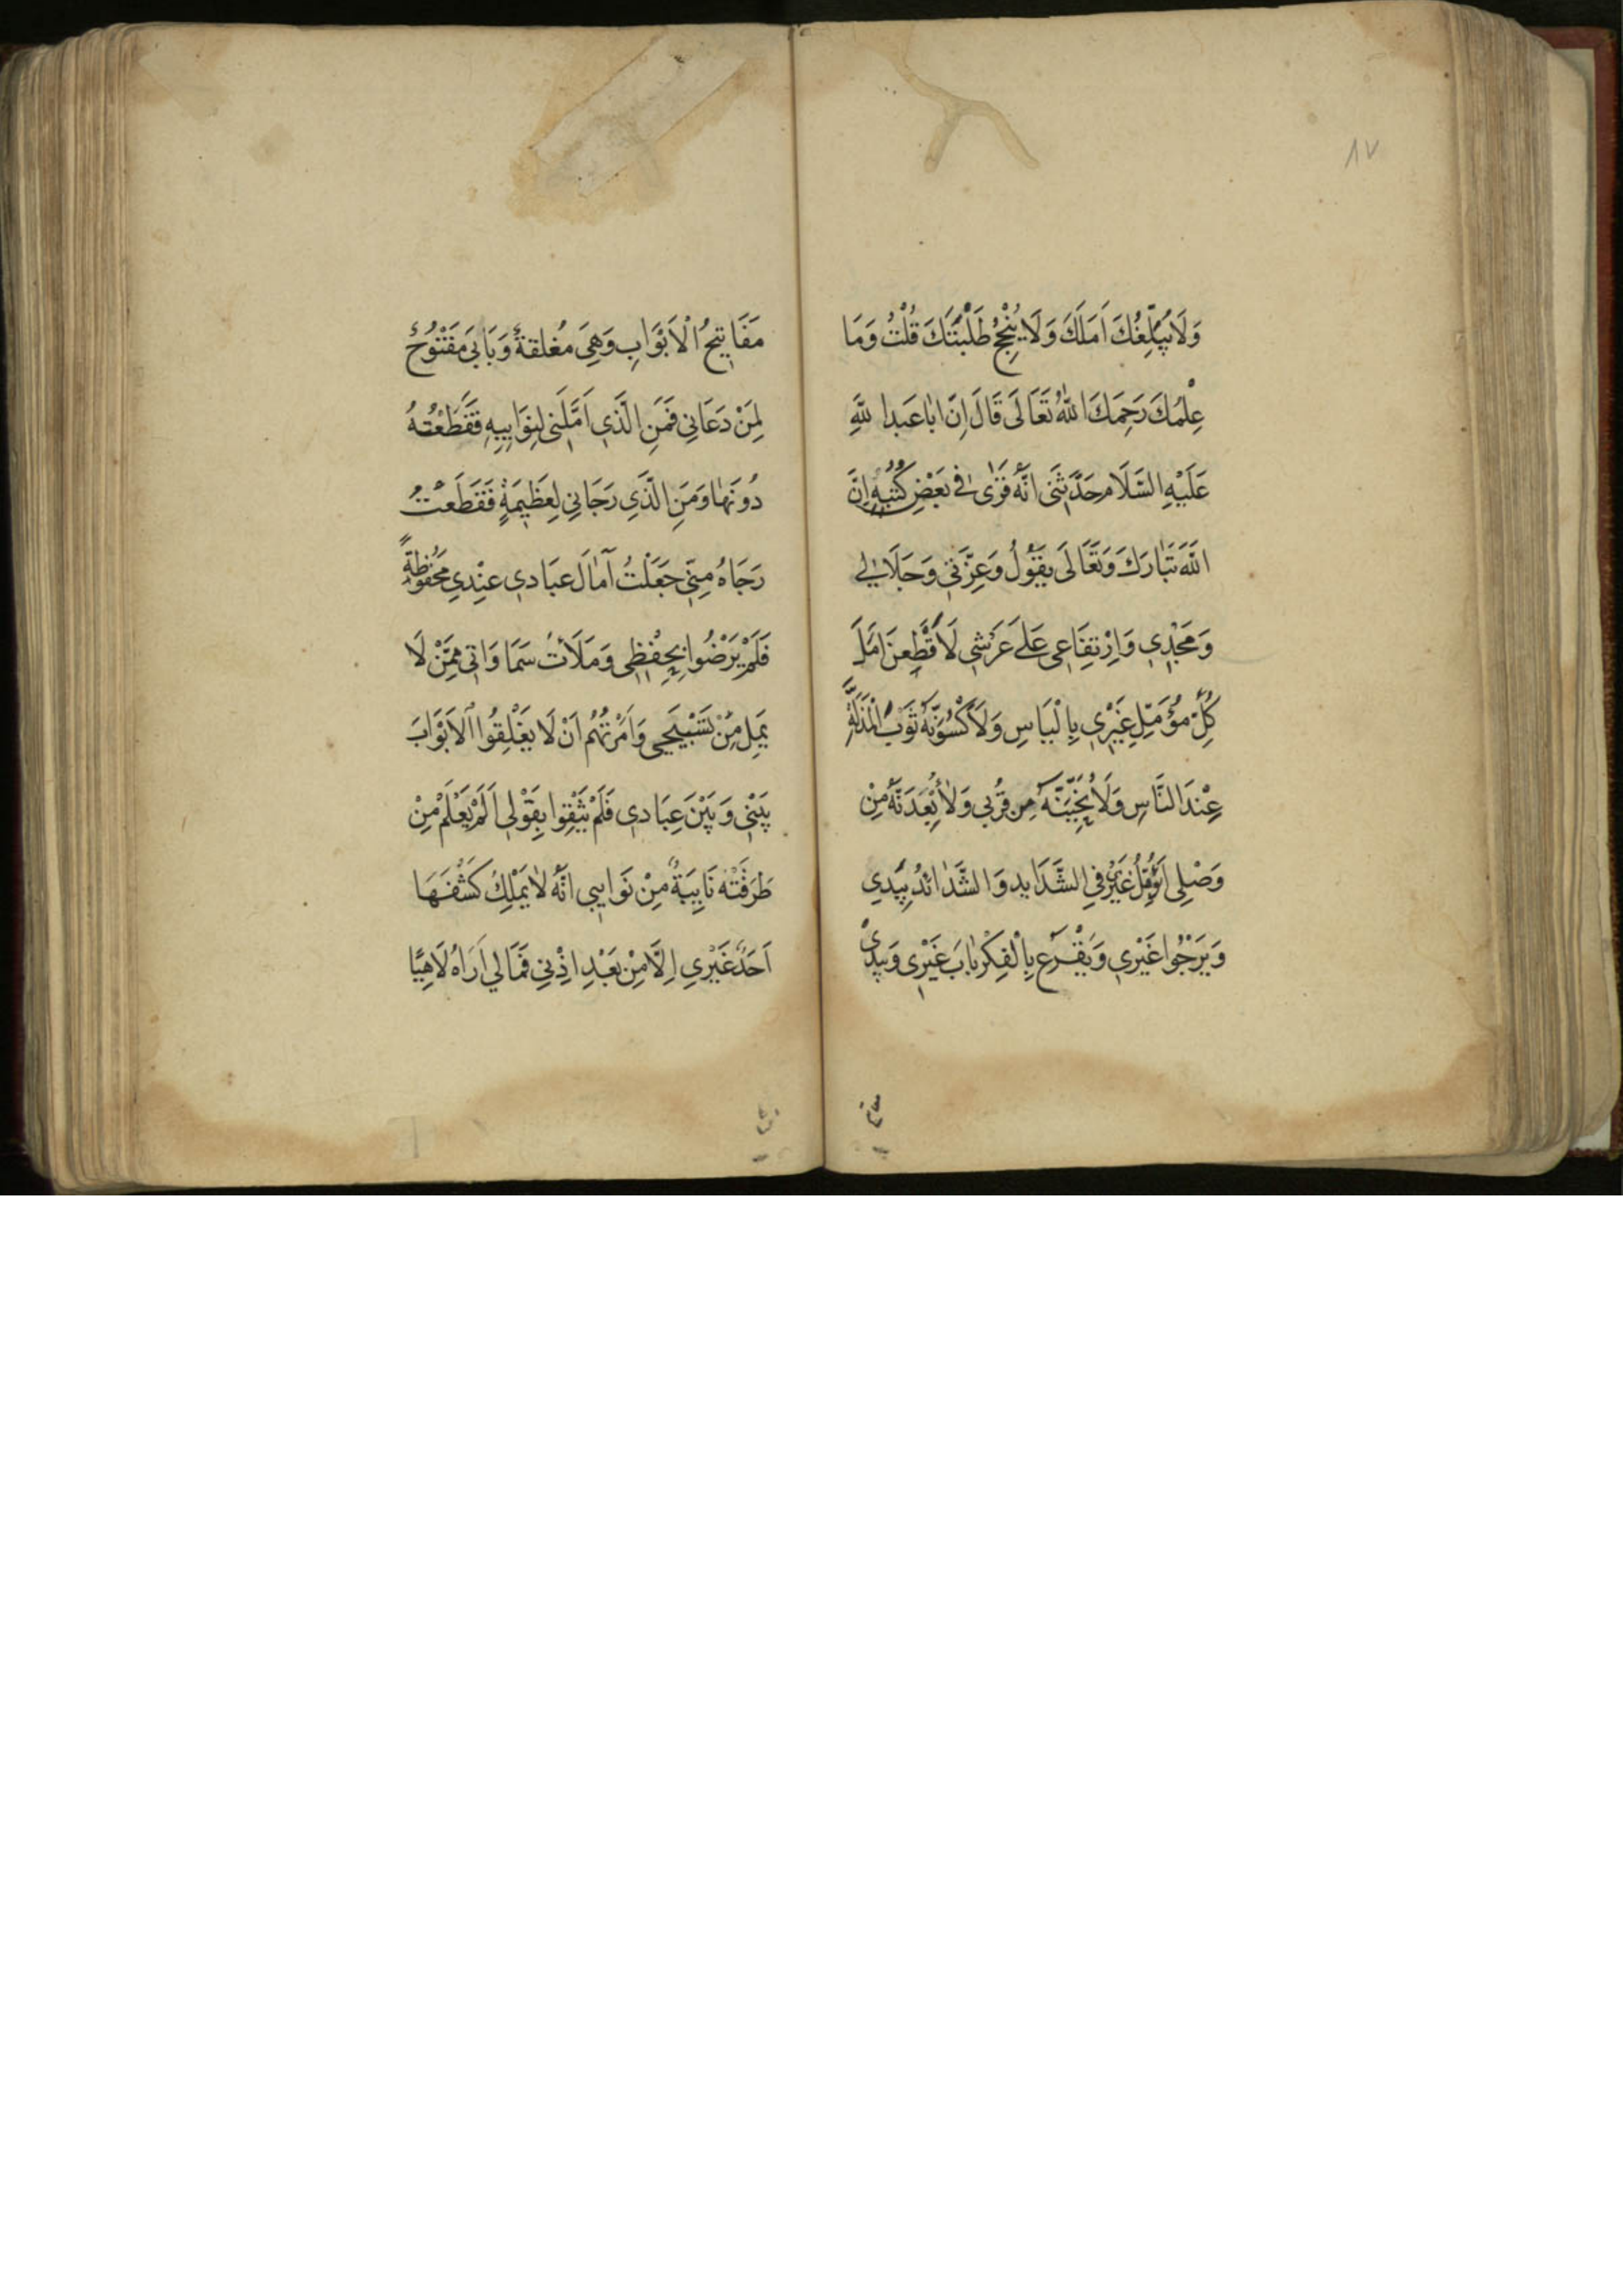 ٨٧
وَلَا يُبَلِّغُكَ اَمَلَكَ وَلَا يُنْجِحُ طَلْبَتَكَ قُلْتُ وَمَا
عِلْمُكَ رَحِمَكَ اللّٰهُ تَعَالَى قَالَ اِنَّ اَبَا عَبدِ اللّٰهِ
عَلَيْهِ السَّلَام حَدَّثَنِى اَنَّهُ قَرَىٰ فِى بَعْضِ كُتُبِهِ اِنَّ
اللّٰهَ تَبَارَكَ وَتَعَالَى يَقُولُ وَعِزَّتِي وَجَلَالِي
وَمَجْدِي وَاِرْتِفَاعِى عَلَى عَرْشِي لَاَقْطِعنَ اَمَلَ
كُلِّ مُؤَمِّلِ غَيْرِي بِالْيَاسِ وَلَاَكْسُوَنَّهُ ثَوْبَ الْمَذَلَّةِ
عِنْدَ النَّاسِ وَلَاُنَحِّيَنَّهُ مِن قُرْبِي وَلَاُبْعِدَنَّهُ مِنْ
وَصْلِى اَيُؤَمِّلُ غَيْرِى فِي الشَّدَايِدِ وَالشَّدَائدُ بِيَدِي
وَيَرْجُوا غَيْرِي وَيَقْرَع بِالْفِكْرِ بَابَ غَيْرِى وَبِيَدِى
مَفَاتِيحُ الْاَبْوَابِ وَهِيَ مُغْلَقَةٌ وَبَابِي مَفْتُوحٌ
لِمَنْ دَعَانِي فَمَنِ الَّذِي اَمَّلَنِى لِنَوَايِبِهِ فَقَطَعْتُهُ
دُونَهَا وَمَنِ الَّذِي رَجَانِي لِعَظِيمَةٍ فَقَطَعْتُ
رَجَاهُ مِنِّي جَعَلْتُ آمَالَ عِبَادِي عِنْدِي مَحْفُوظَةً
فَلَمْ يَرْضُوا بِحِفْظِي وَمَلَأْتُ سَمَاوَاتِي مِمَّنْ لَا
يَمِلُ مِنْ تَسْبِيحِي وَاَمَرْتُهُم اَنْ لَا يَغْلِقُوا الْاَبْوَابَ
بَيْنِي وَبَيْنَ عِبَادِي فَلَمْ يَثِقُوا بِقَوْلِى اَلَمْ يَعْلَمْ مِنْ
طَرَقَتْهُ نَايِبَةٌ مِنْ نَوَايِبِي اَنَّهُ لَا يَمْلِكُ كَشْفَهَا
اَحَدٌ غَيْرِي اِلَّا مِنْ بَعْدِ اِذْنِي فَمَا لِي اَرَاهُ لَاهِيًا